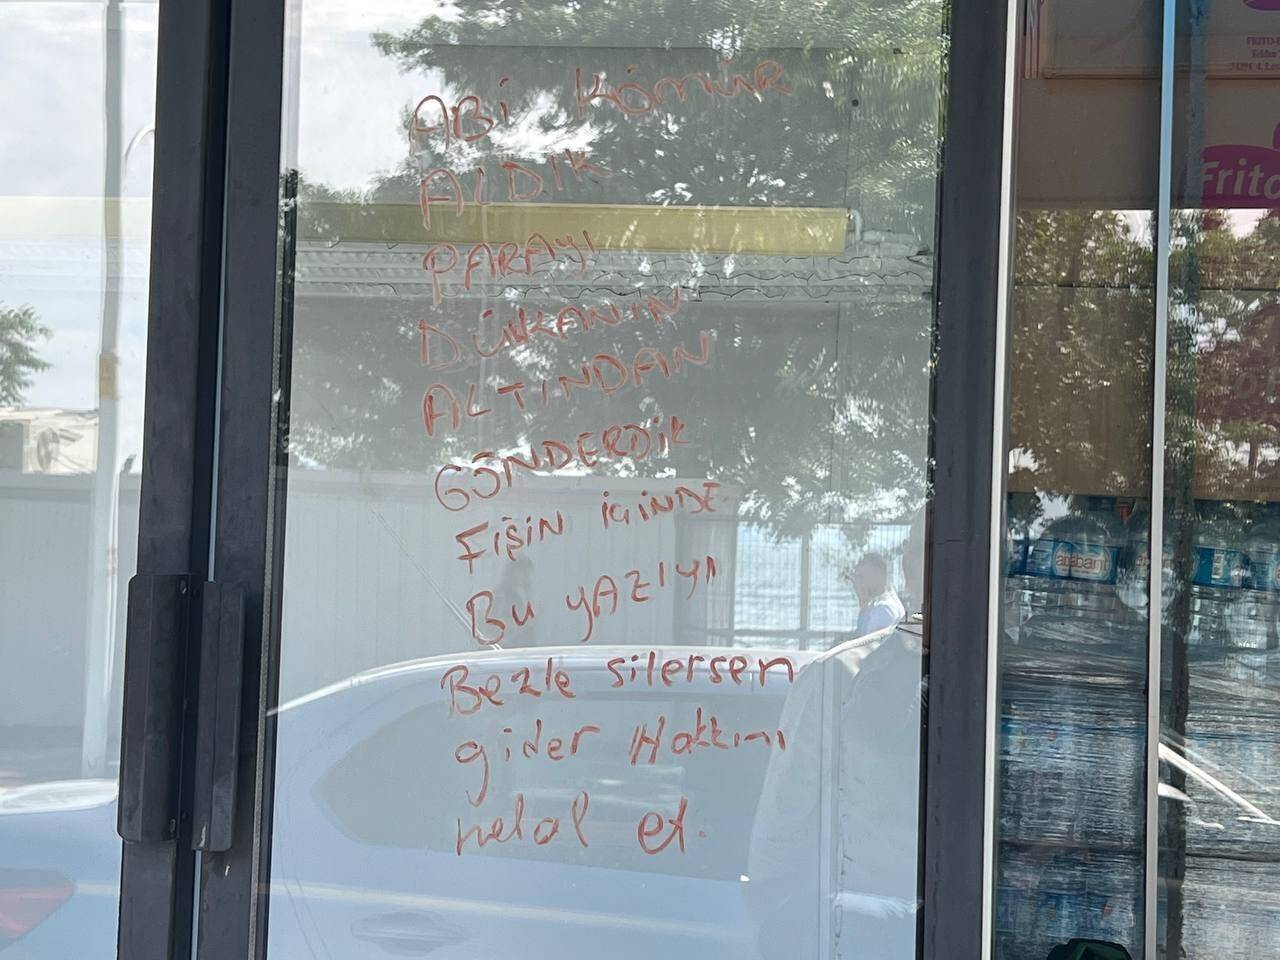 ABİ KÖMÜR
ALDIK
PARAYI
DÜKKANIN
ALTINDAN
GÖNDERDİK
FİŞİN İÇİNDE
BU YAZIYI
Bezle silersen
gider Hakkını
helal et.
FRITO
Frito